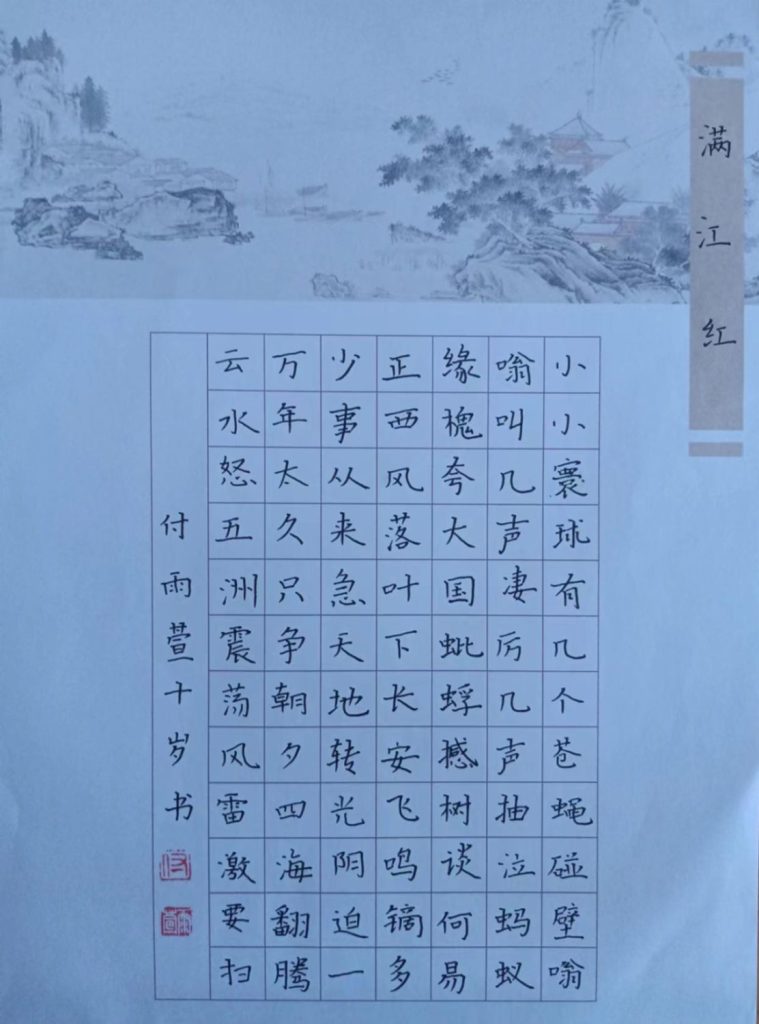 满江红
小小寰球有几个苍蝇碰壁嗡
嗡叫几声凄厉几声抽泣蚂蚁
缘槐夸大国蚍蜉撼树谈何易
正西风落叶下长安飞鸣镝多
少事从来急天地转光阴迫一
万年太久只争朝夕四海翻腾
云水怒五洲震荡风雷激要扫
付雨萱十岁书
付
雨萱